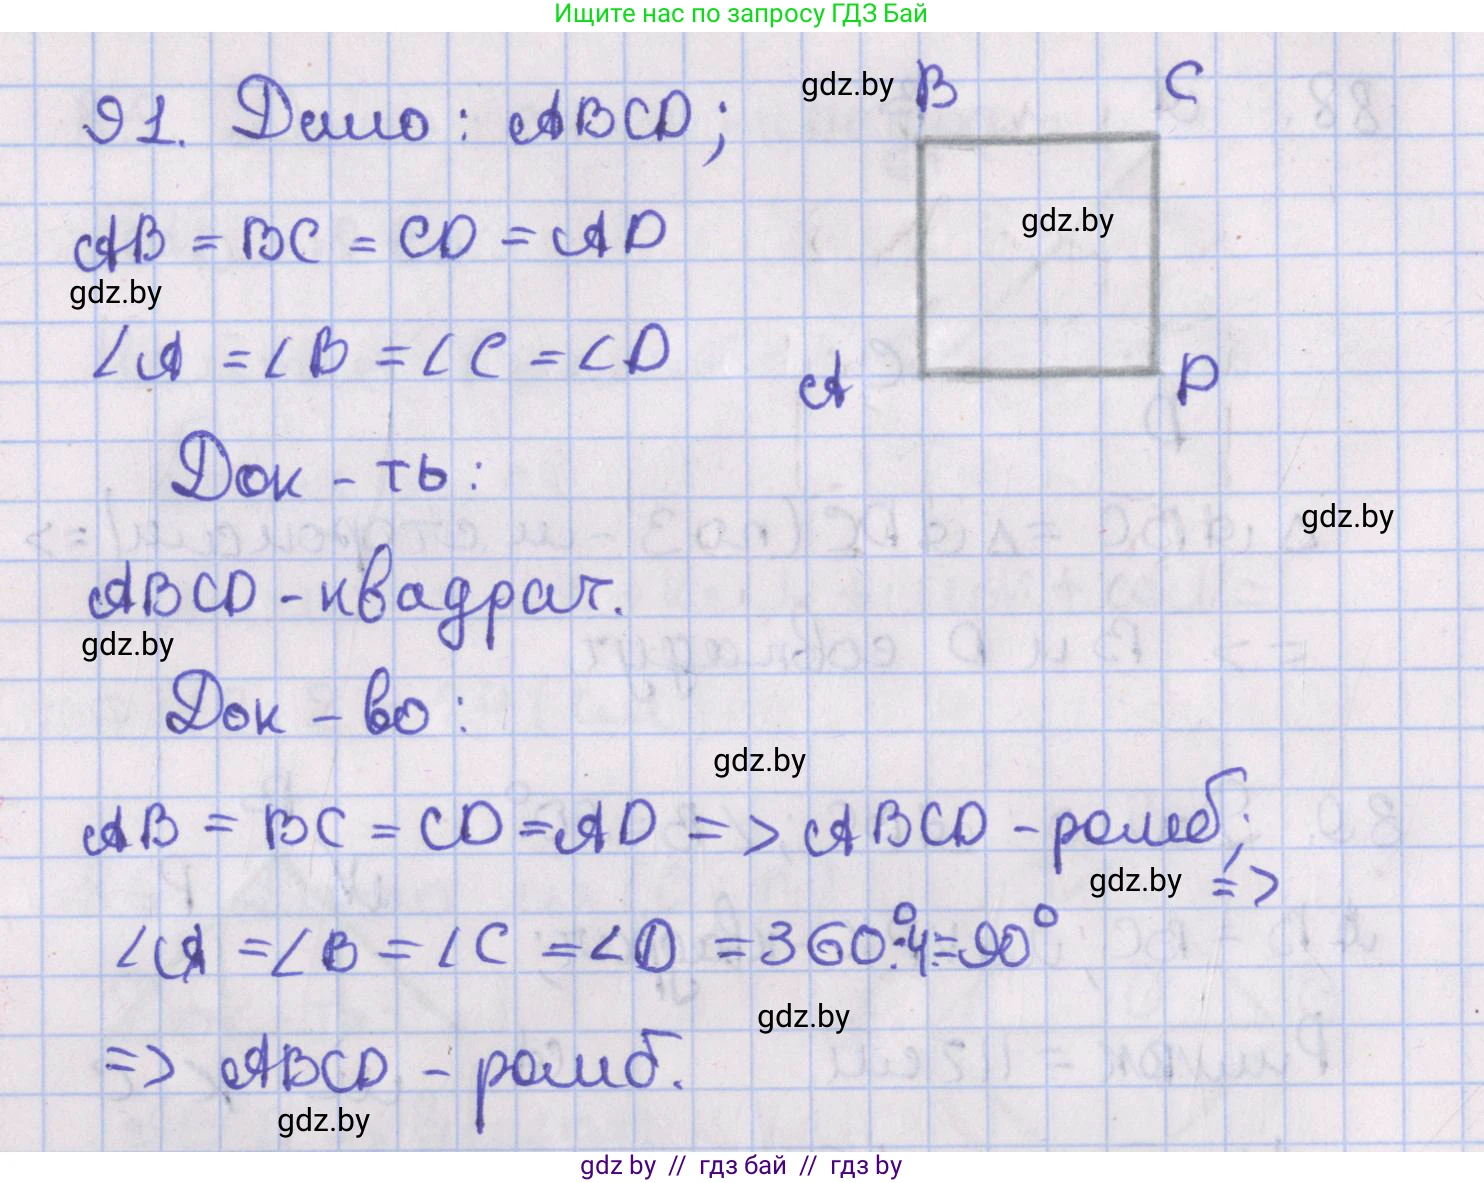 Ищите нас по запросу ГДЗ Бай
91. Дано: ABCD;
gdz.by
B
C
AB = BC = CD = AD
gdz.by
gdz.by
∠A = ∠B = ∠C = ∠D
A
D
Док-ть:
gdz.by
ABCD - квадрат.
gdz.by
Док-во:
gdz.by
AB = BC = CD = AD => ABCD - ромб;
gdz.by
=>
∠A = ∠B = ∠C = ∠D = 360°:4 = 90°
gdz.by
=> ABCD - ромб.
gdz.by
gdz.by // гдз бай // гдз by